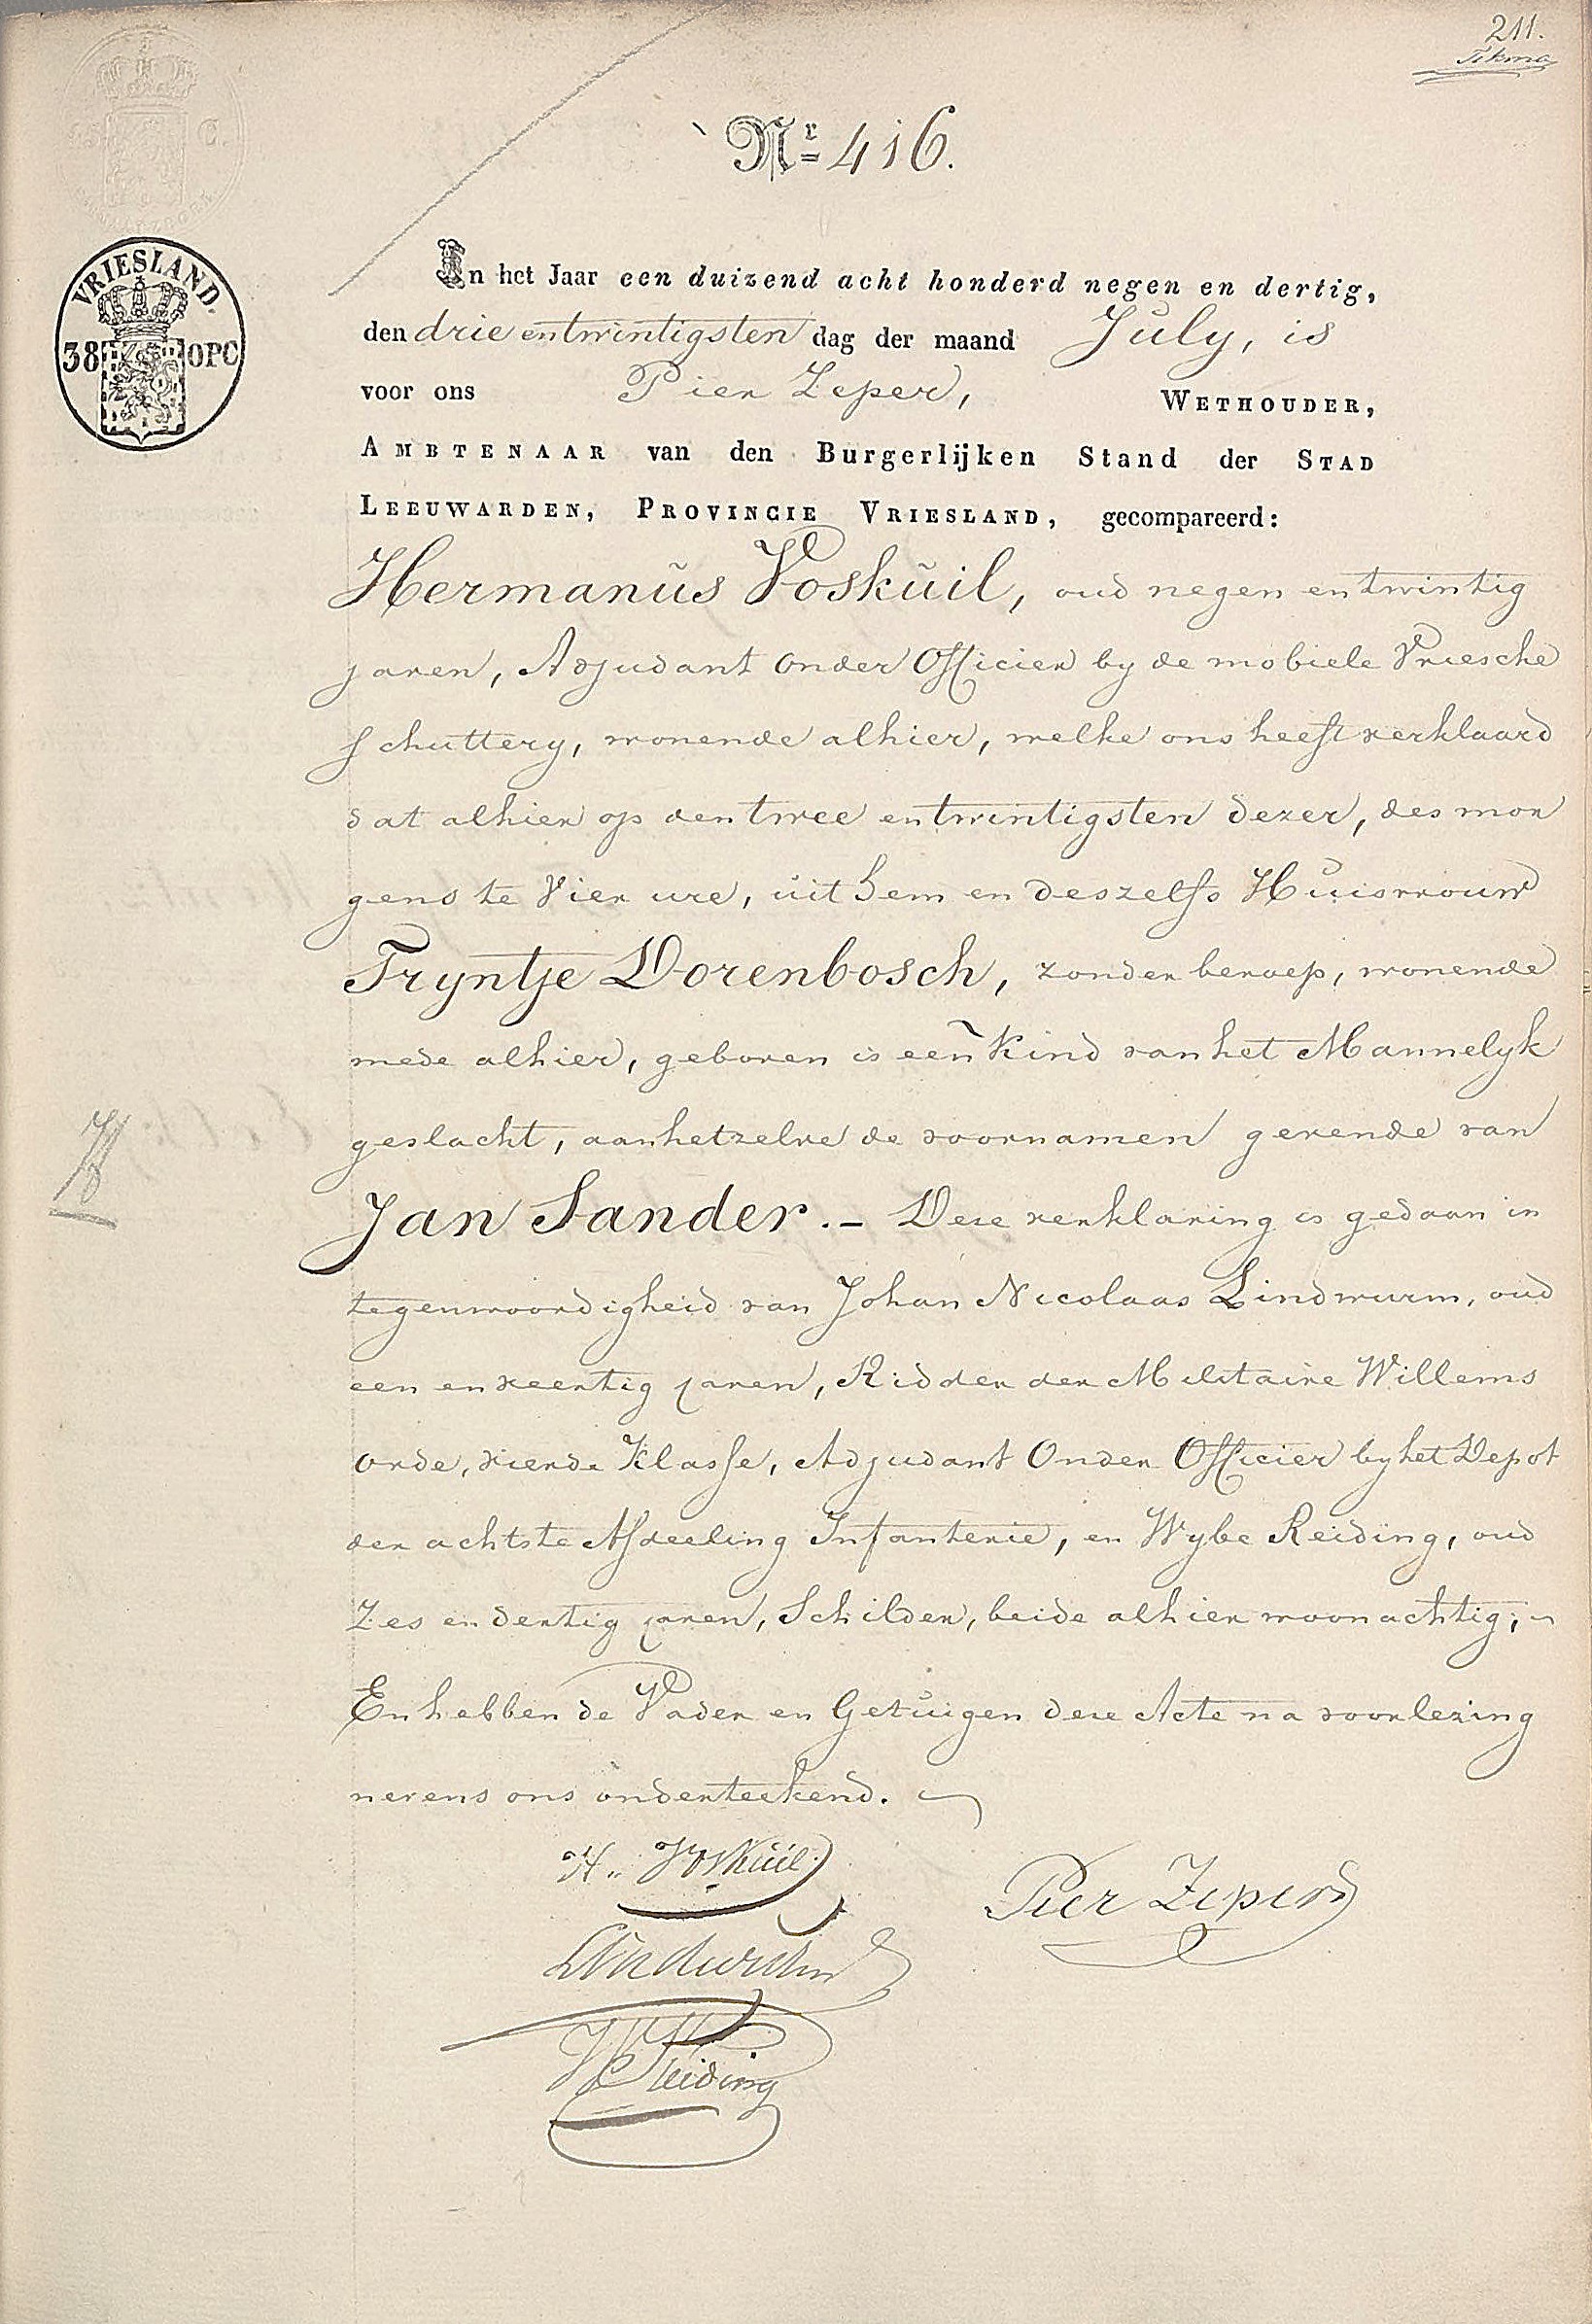 211.
Nr 416.
VRIESLAND.
38 OPC
In het Jaar een duizend acht honderd negen en dertig,
den drie en twintigsten dag der maand July, is
voor ons Pier Zeper, WETHOUDER,
AMBTENAAR van den Burgerlijken Stand der STAD
LEEUWARDEN, PROVINCIE VRIESLAND, gecompareerd:
Hermanus Voskuil, oud negen en twintig
jaren, Adjudant Onder Officier by de mobiele Vriesche
schuttery, wonende alhier, welke ons heeft verklaard
dat alhier op den twee en twintigsten dezer, des mor
gens te Vier ure, uit hem en deszelfs Huisvrouw
Tryntje Dorenbosch, zonder beroep, wonende
mede alhier, geboren is een Kind van het Mannelyk
geslacht, aan hetzelve de voornamen gevende van
Jan Sander. - Deze verklaring is gedaan in
tegenwoordigheid van Johan Nicolaas Lindwurm, oud
een en veertig jaren, Ridder der Militaire Willems
orde, vierde Klasse, Adjudant Onder Officier by het Depot
der achtste Afdeeling Infanterie, en Wybe Reiding, oud
Zes en dertig jaren, Schilder, beide alhier woonachtig;
En hebben de Vader en Getuigen deze Acte na voorlezing
nevens ons onderteekend.
H. Voskuil
Pier Zeper
Lindwurm
W Reiding